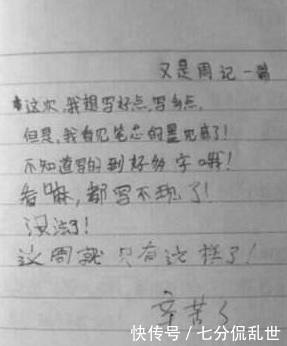 又是周记一篇
这次,我想写好点,写多点,
但是,我看见笔芯的墨见底了!
不知道写的到好多字哦!
看嘛,都写不现了!
没法了!
这周就只有这样了!
辛苦了
快传号/七分侃乱世